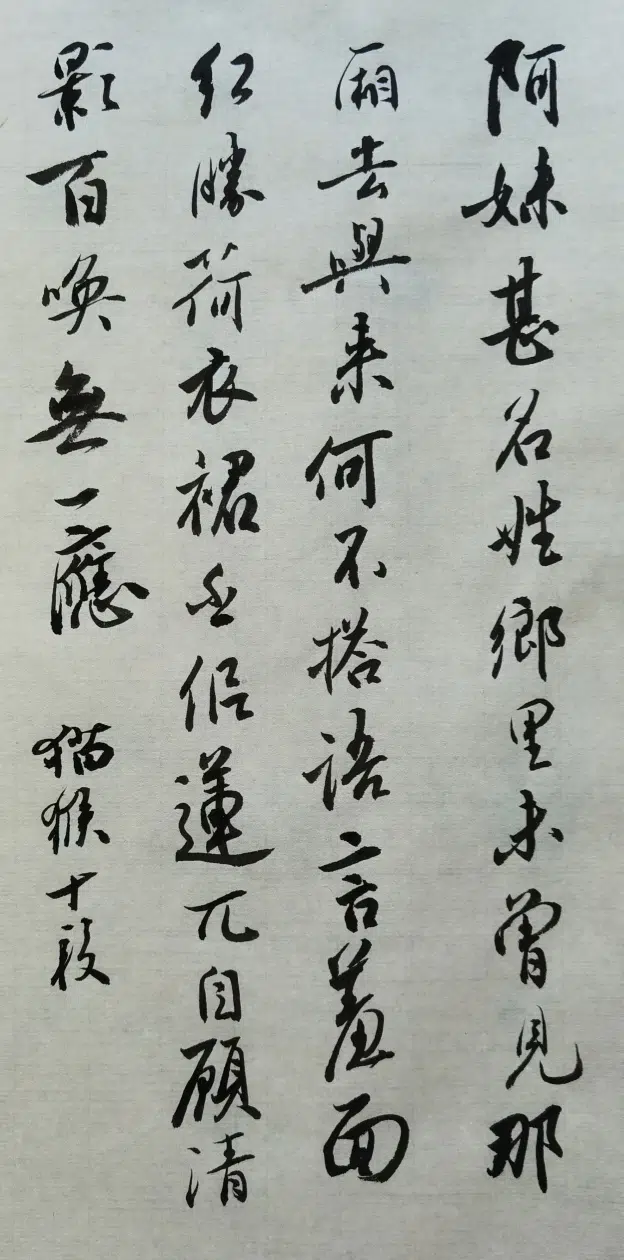 阿妹甚名姓鄉里未曾見那
廂去與来何不搭語言羞面
紅勝荷衣裙心似蓮兀自顧清
影百喚無一應
猫猴十段